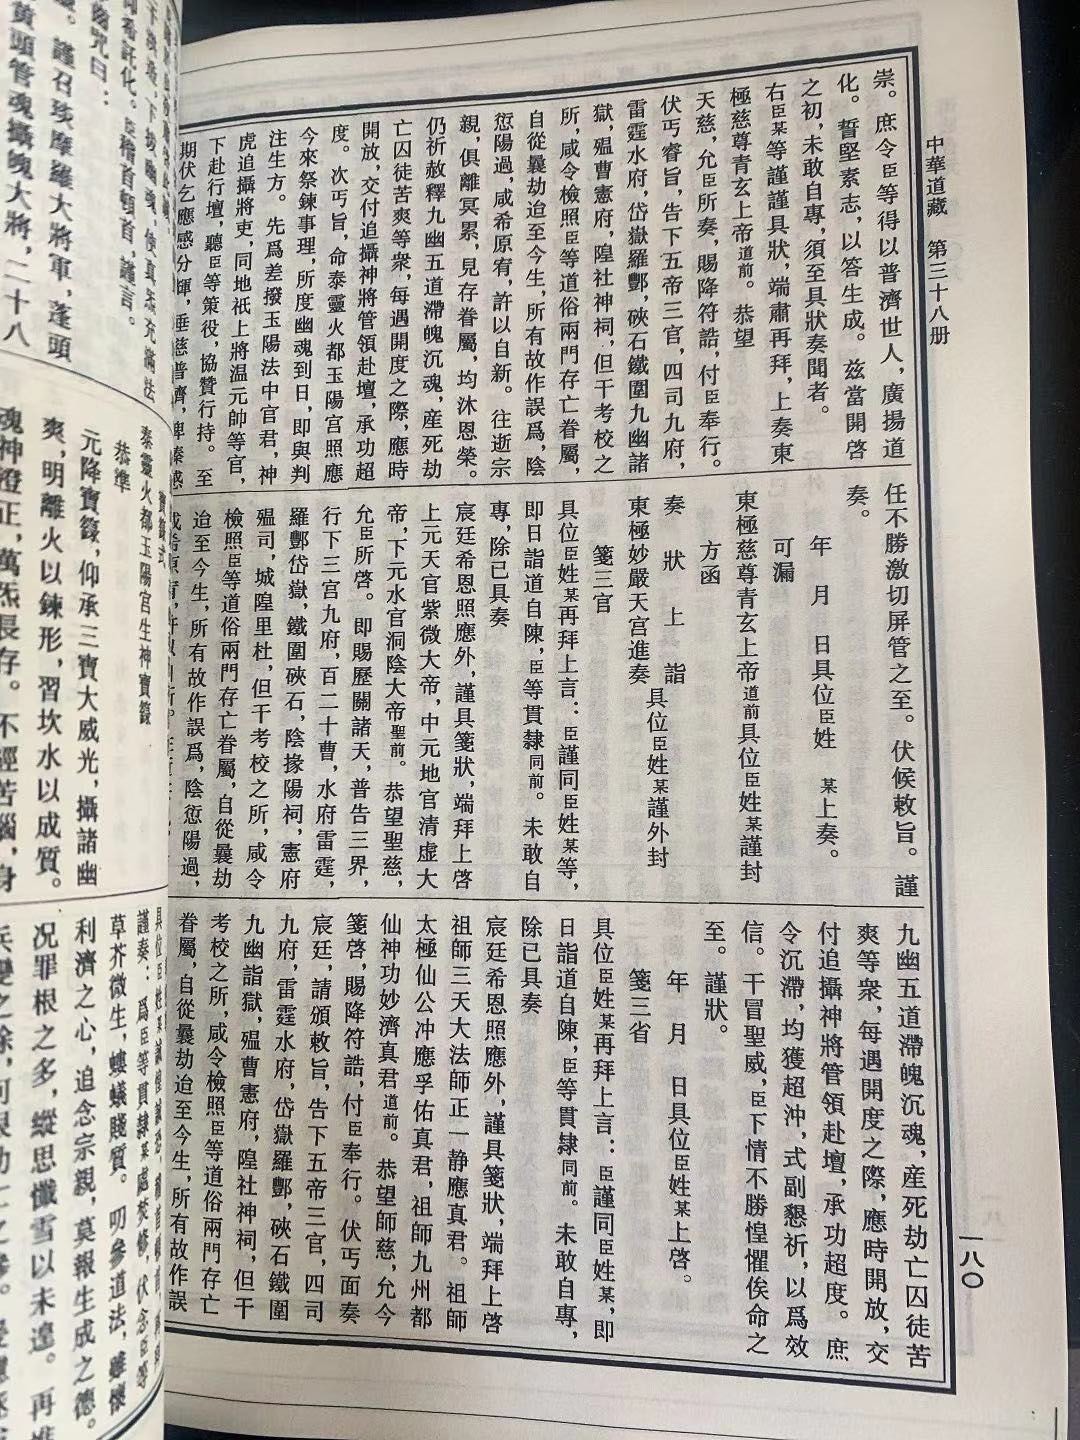 中華道藏　第三十八册
一八〇
祟。庶令臣等得以普濟世人，廣揚道
化。誓堅素志，以答生成。兹當開啓
之初，未敢自專，須至具狀奏聞者。
右臣某等謹謹具狀，端肅再拜，上奏東
極慈尊青玄上帝道前。恭望
天慈，允臣所奏，賜降符誥，付臣奉行。
伏丐睿旨，告下五帝三官，四司九府，
雷霆水府，岱嶽羅酆，硤石鐵圍九幽諸
獄，殟曹憲府，隍社神祠，但干考校之
所，咸令檢照臣等道俗兩門存亡眷屬，
自從曩劫迨至今生，所有故作誤爲，陰
愆陽過，咸希原宥，許以自新。往逝宗
親，俱離冥累，見存眷屬，均沐恩榮。
仍祈赦釋九幽五道滯魄沉魂，産死劫
亡囚徒苦爽等衆，每遇開度之際，應時
開放，交付追攝神將管領赴壇，承功超
度。次丐旨，命泰靈火都玉陽宫照應
今來祭鍊事理，所度幽魂到日，即與判
注生方。先爲差撥玉陽法中官君，神
虎追攝將吏，同地祇上將温元帥等官，
下赴行壇，聽臣等策役，協贊行持。至
期伏乞應感分輝，垂慈普濟，俾臻感
任不勝激切屏管之至。伏候敕旨。謹
奏。
年　月　日具位臣姓　某上奏。
可漏
東極慈尊青玄上帝道前具位臣姓某謹封
方函
奏　狀　上　詣　具位臣姓某謹外封
東極妙嚴天宫進奏
箋三官
具位臣姓某再拜上言：臣謹同臣姓某等，
即日詣道自陳，臣等貫隸同前。未敢自
專，除已具奏
宸廷希恩照應外，謹具箋狀，端拜上啓
上元天官紫微大帝，中元地官清虚大
帝，下元水官洞陰大帝聖前。恭望聖慈，
允臣所啓。即賜歷關諸天，普告三界，
行下三宫九府，百二十曹，水府雷霆，
羅酆岱嶽，鐵圍硤石，陰掾陽祠，憲府
殟司，城隍里社，但干考校之所，咸令
檢照臣等道俗兩門存亡眷屬，自從曩劫
迨至今生，所有故作誤爲，陰愆陽過，
九幽五道滯魄沉魂，産死劫亡囚徒苦
爽等衆，每遇開度之際，應時開放，交
付追攝神將管領赴壇，承功超度。庶
令沉滯，均獲超沖，式副懇祈，以爲效
信。干冒聖威，臣下情不勝惶懼俟命之
至。謹狀。
年　月　日具位臣姓某上啓。
箋三省
具位臣姓某再拜上言：臣謹同臣姓某，即
日詣道自陳，臣等貫隸同前。未敢自專，
除已具奏
宸廷希恩照應外，謹具箋狀，端拜上啓
祖師三天大法師正一静應真君。祖師
太極仙公冲應孚佑真君，祖師九州都
仙神功妙濟真君道前。恭望師慈，允今
箋啓，賜降符誥，付臣奉行。伏丐面奏
宸廷，請頒敕旨，告下五帝三官，四司
九府，雷霆水府，岱嶽羅酆，硤石鐵圍
九幽詣獄，殟曹憲府，隍社神祠，但干
考校之所，咸令檢照臣等道俗兩門存亡
眷屬，自從曩劫迨至今生，所有故作誤
仰希託化。臣稽首頓首，謹言。
咒曰：
謹召琰摩羅大將軍，蓬頭
黄頭管魂攝魄大將，二十八
寶籙式
泰靈火都玉陽宫生神寶籙
恭準
元降寶籙，仰承三寶大威光，攝諸幽
爽，明離火以鍊形，習坎水以成質。
魂神澄正，萬炁長存。不經苦惱，身
草芥微生，螻蟻賤質。叨參道法，雖懷
利濟之心，追念宗親，莫報生成之德。
况罪根之多，縱思懺雪以未遑。再進